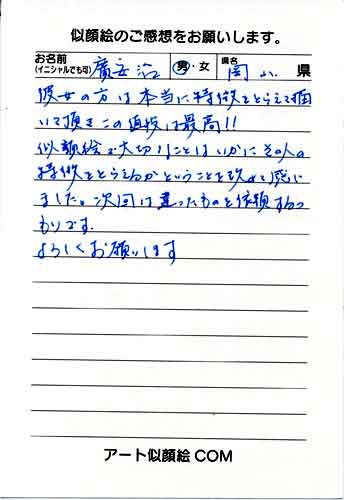 似顔絵のご感想をお願いします。
お名前 (イニシャルでも可) 廣安 治 男・女 県名 岡山 県
彼女の方は本当に特徴をとらえて描
いて頂きこの直哉は最高!!
似顔絵で大切なことはいかにその人の
特徴をとらえるかということを改めて感じ
ました。次回は違ったものを依頼するつ
もりです。
よろしくお願いします
アート似顔絵COM